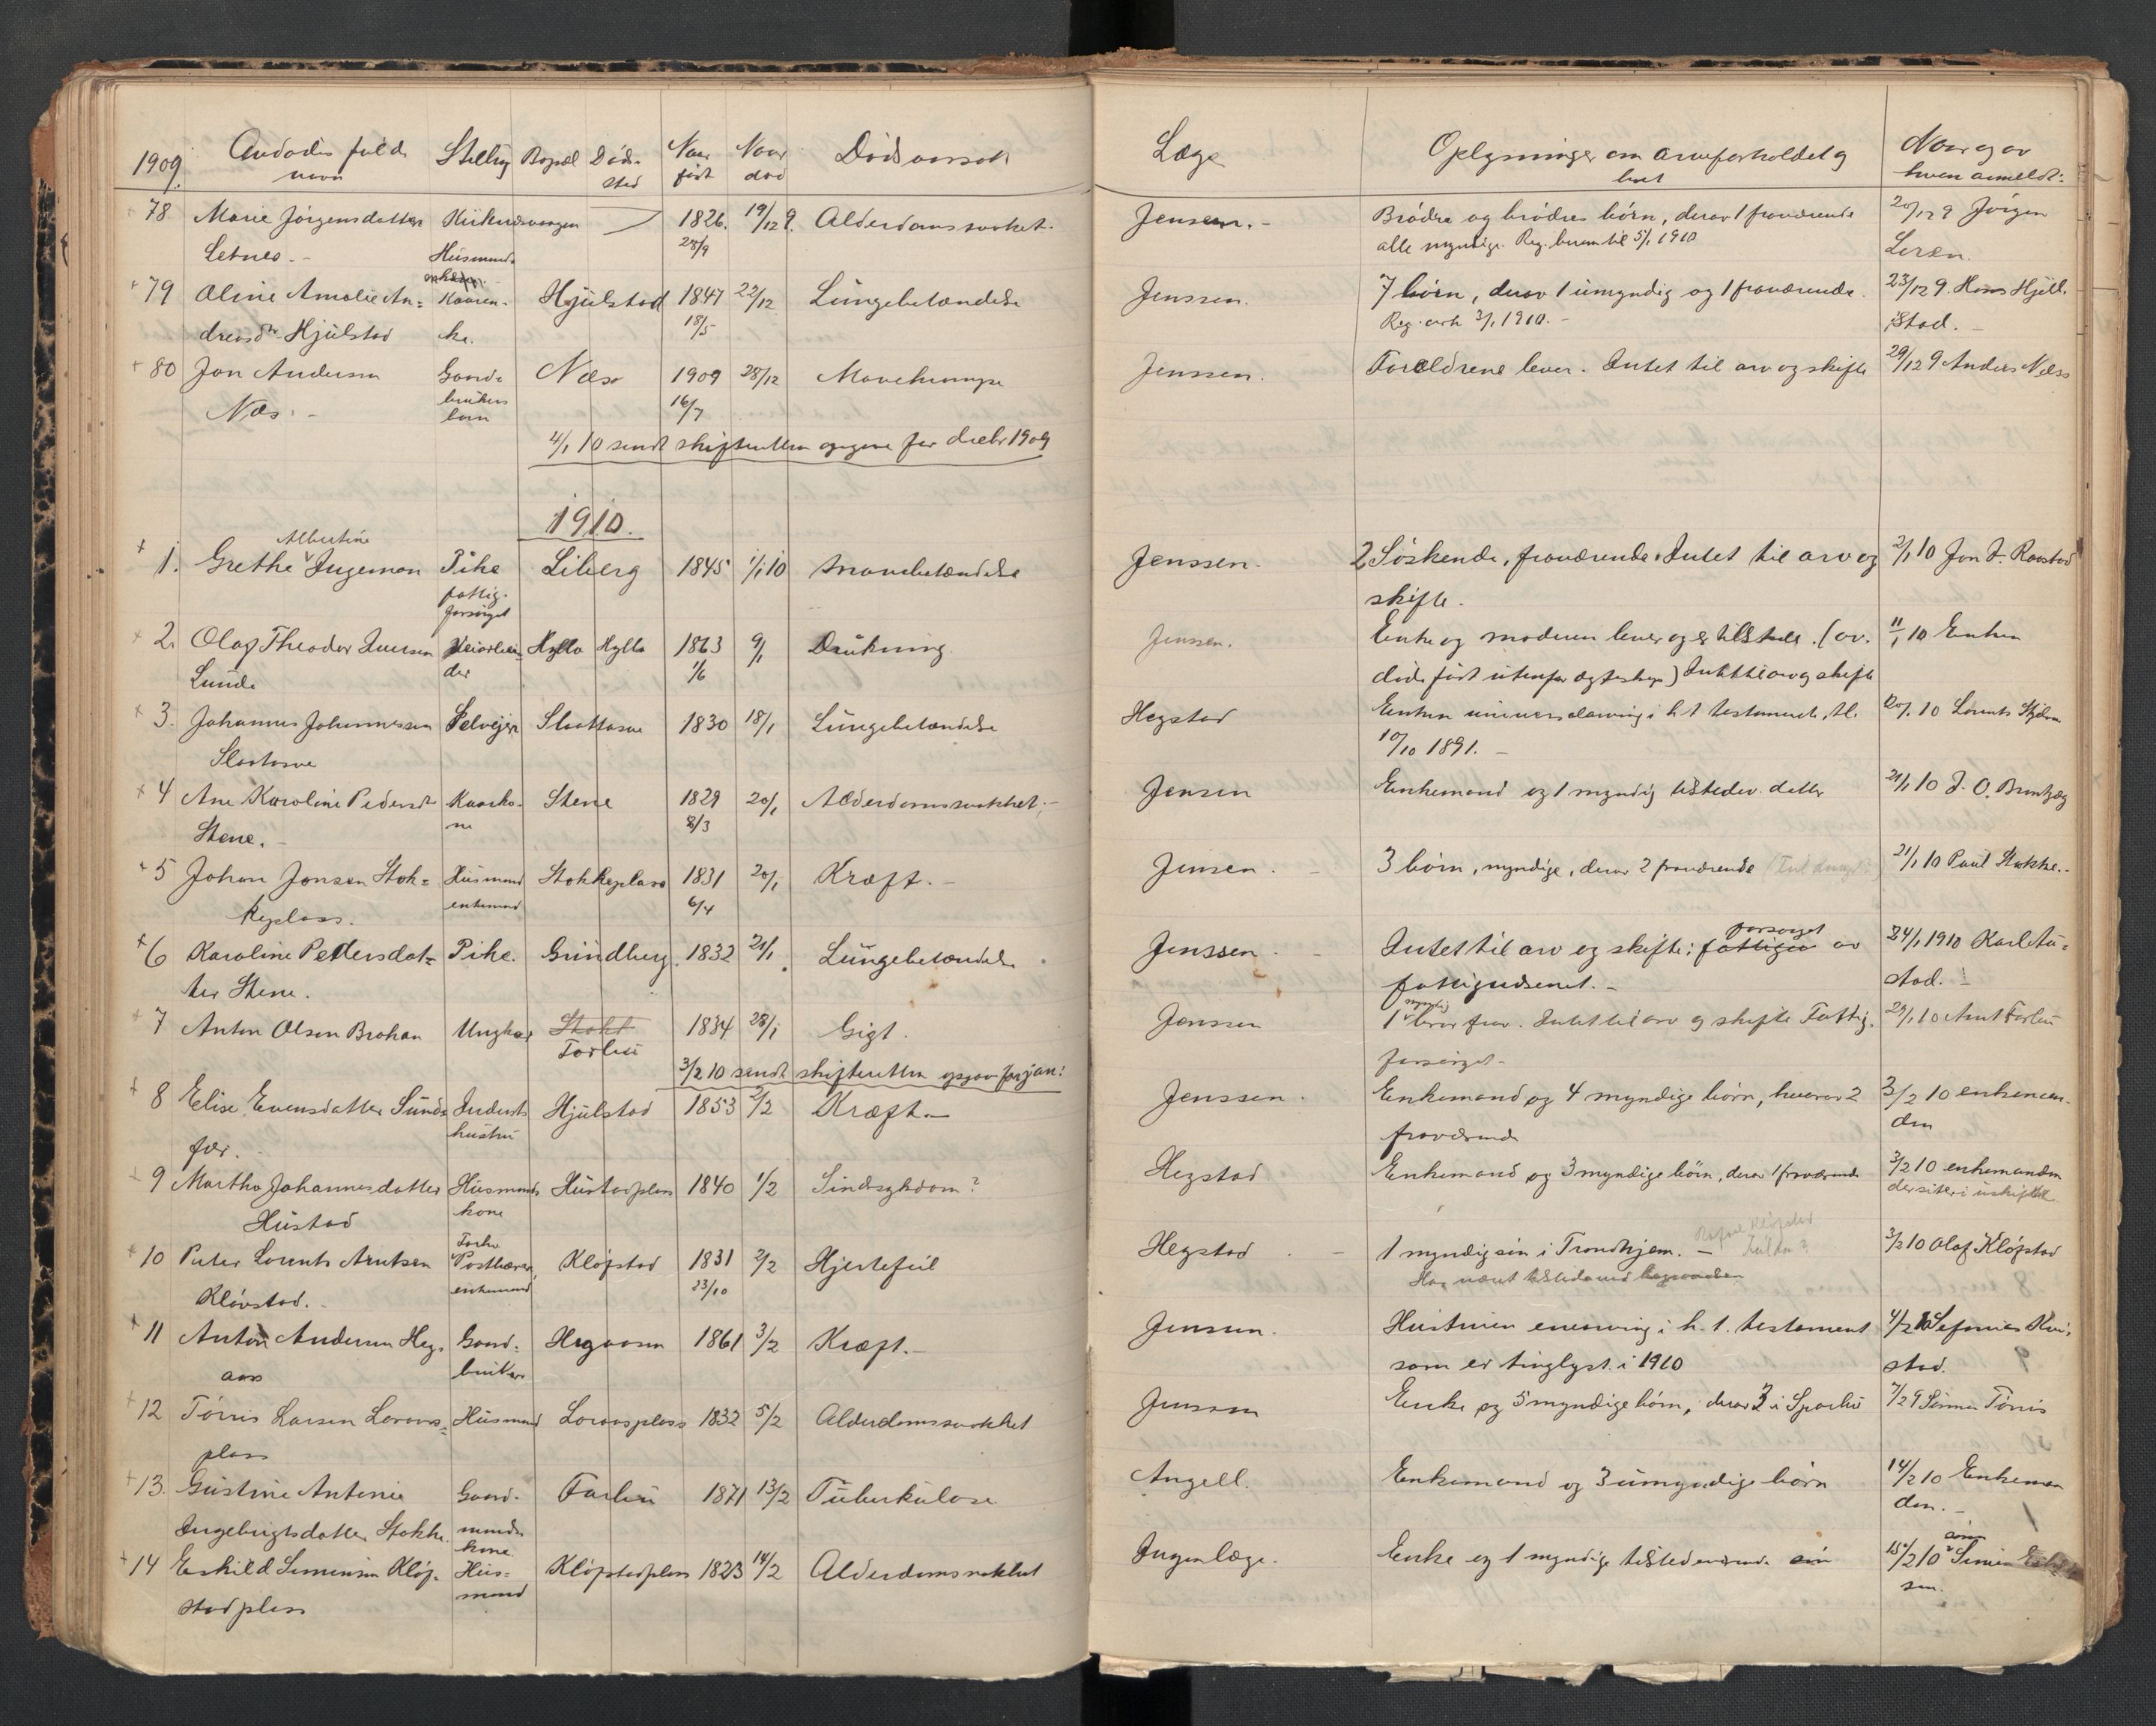 1909.
Avdødes fulde navn Stilling Bopæl Dødssted Naar født Naar død Dødsaarsak Læge Oplysninger om arveforholdet og Naar og av hvem anmeldt:
78 Marie Jørgensdatter 1826. 19/12 9. Alderdomssvakhet. Jenssen. Brødre og brødres børn, derav 1 fraværende 20/12 9 Jørgen
Letnes. Husmands 28/9 alle myndige. 5/1 1910
79 Oline Amalie An= Hjulstad 1847 22/12 Lungebetændelse Jenssen. 7 børn, derav 1 umyndig og 1 fraværende. 23/12 9. Hans Hjul
dreasdtr Hjulstad ke. 18/5 3/1 1910. stad.
80 Jon Andersen Gaard- Næss 1909 28/12 Mavekrampe Jenssen. Forældrene lever. Intet til arv og skifte 29/12 9 Anders Næss
Næs. brukers 16/7
barn
4/1 10 sendt skifteretten opgave for decbr 1909
1910.
Albertine
1. Grethe Ingeman Pike Liberg 1845 1/1 10 Mavebetændelse Jenssen. 2 Søskende, fraværende. Intet til arv og 2/1 10 Jon
fattig- skifte.
forsørget
2. Olaf Theodor Hylla Hylla 1863 9/1 Drukning Jenssen. Enke og moderen lever og er tilstede. (av- 11/1 10 Enken
Lunde 1/6 døde født utenfor ægteskap) Intet til arv og skifte
3. Johannes Johannessen Selveier 1830 18/1 Lungebetændelse Hegstad Enken 10 Lorents
10/10 1891.
4 Ane Karoline Pedersdtr Kaarko- Stene 1829 20/1 Alderdomssvakhet. Jenssen Enkemand og 1 myndig tilstedev. datter 21/1 10 J. O.
Stene. ne 8/3
5 Johan Jonsen Stok= Husmand Stokkeplass 1831 20/1 Kræft. Jenssen. 3 børn, myndige, derav 2 fraværende 21/1 10 Paul Stokke.
keplass. enkemand 6/4
forsørget
6 Karoline Pettersdat= Pike. Grundberg 1832 21/1 Lungebetændelse Jenssen. Intet til arv og skifte: av 24/1 1910 Karl
ter Stene. fattigvæsenet. stad.
myndig
7 Anton Olsen Brohan Ungkar Stokk 1834 28/1 Gigt. Jenssen 1 bror frav. Intet til arv og skifte Fattig. 29/1 10 Arnt Forbu
forsørget.
3/2 10 sendt skifteretten opgave for jan:
8 Elise Evensdatter Sunds Inderst Hjulstad 1853 2/2 Kræft. Jenssen. Enkemand og 4 myndige børn, hvorav 2 3/2 10 enkeman-
hustru fraværende den
9 Martha Johannesdatter Husmands Hustadplass 1840 1/2 Sindssykdom? Hegstad Enkemand og 3 myndige børn, derav 1 fraværende 3/2 10 enkemanden
Hustad kone der sitter i uskiftet
10 Peter Lorents Arntsen Postbærer, Kløfstad 1831 2/2 Hjertefeil Hegstad 1 myndig søn i Trondhjem. 3/2 10 Olaf Kløfstad
Kløvstad. enkemand 23/10
11 Anton Andersen Heg- Gaard- 1861 3/2 Kræft. Jenssen. Hustruen enearving i h. t. testament 4/2
aas bruker som er tinglyst i 1910 stad.
12 Tørris Larsen Husmand 1832 5/2 Alderdomssvakhet Jenssen Enke og 5 myndige børn, derav 3 i Sparbu 7/2 9 Sønnen Tørris
plass
13. Gustine Antonie Gaard- 1871 13/2 Tuberkulose Angell. Enkemand og 3 umyndige børn 14/2 10 Enkeman
Ingebrigtsdatter Stokke mands den.
kone
14 Eskild Simensen Kløf- Hus= Kløfstadplass 1823 14/2 Alderdomssvakhet Ingen læge. Enke og 1 myndige tilstedeværende søn 15/2 10 Simen
stadplass mand sen.